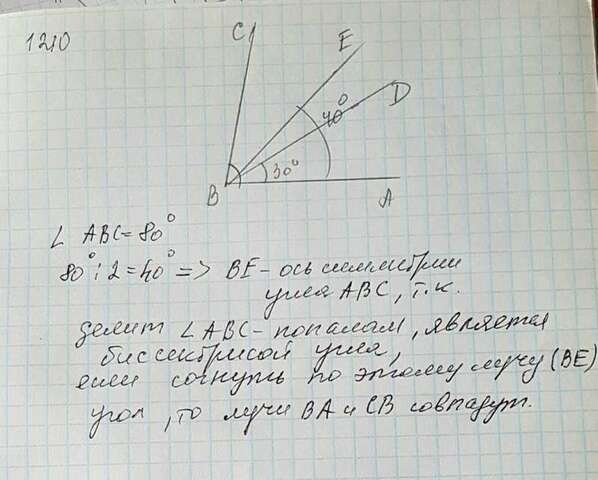 1210
C
E
D
40°
30°
B
A
∠ ABC = 80°
80° : 2 = 40° => BE - ось симметрии
угла ABC, т.к.
делит ∠ ABC - попалам, является
биссектрисой угла,
если согнуть по этому лучу (BE)
угол, то лучи BA и CB совпадут.